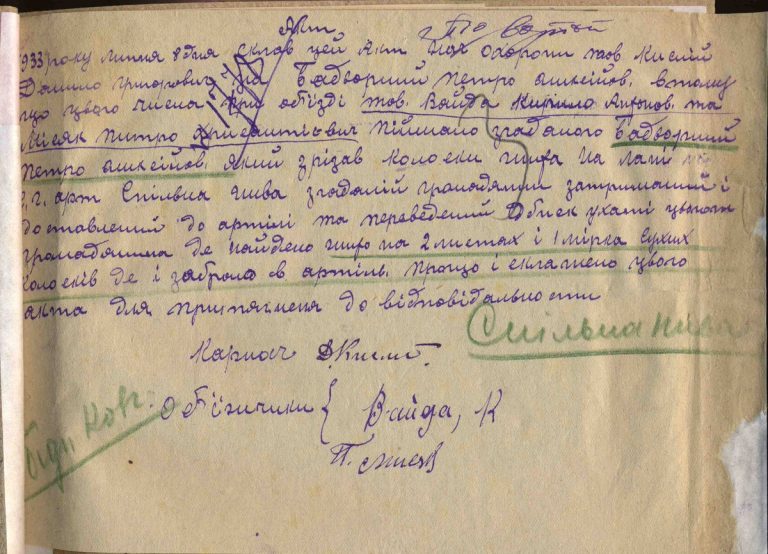 Акт
1933) року липня 8 дня склав цей Акт нач охорони тов Кислий
Данило Григорович на Бадворний Петро Алексійов. в тому
що цього числа при обїзді тов. Вайда Кирило Антонов. та
Місяк Петро піймано згаданого Бадворний
Петро Алексійов. який зрізав колоски жита на лані
с. г. арт Спільна нива згаданій громадянин затриманий і
доставлений до артілі та переведений Обиск у хаті цього
громадянина де найдено жито на 2 листах і 1 мірка сухих
колосків де і забрано в артіль. про що і складено цього
акта для притягненя до відповідальности
Спільна нива
Карнач Д. Кислі.
Обїзчики { Вайда, К
П. Місяк